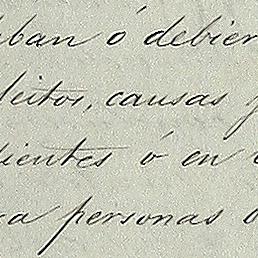 ban ó debier
leitos, causas
dientes ó en
ca personas